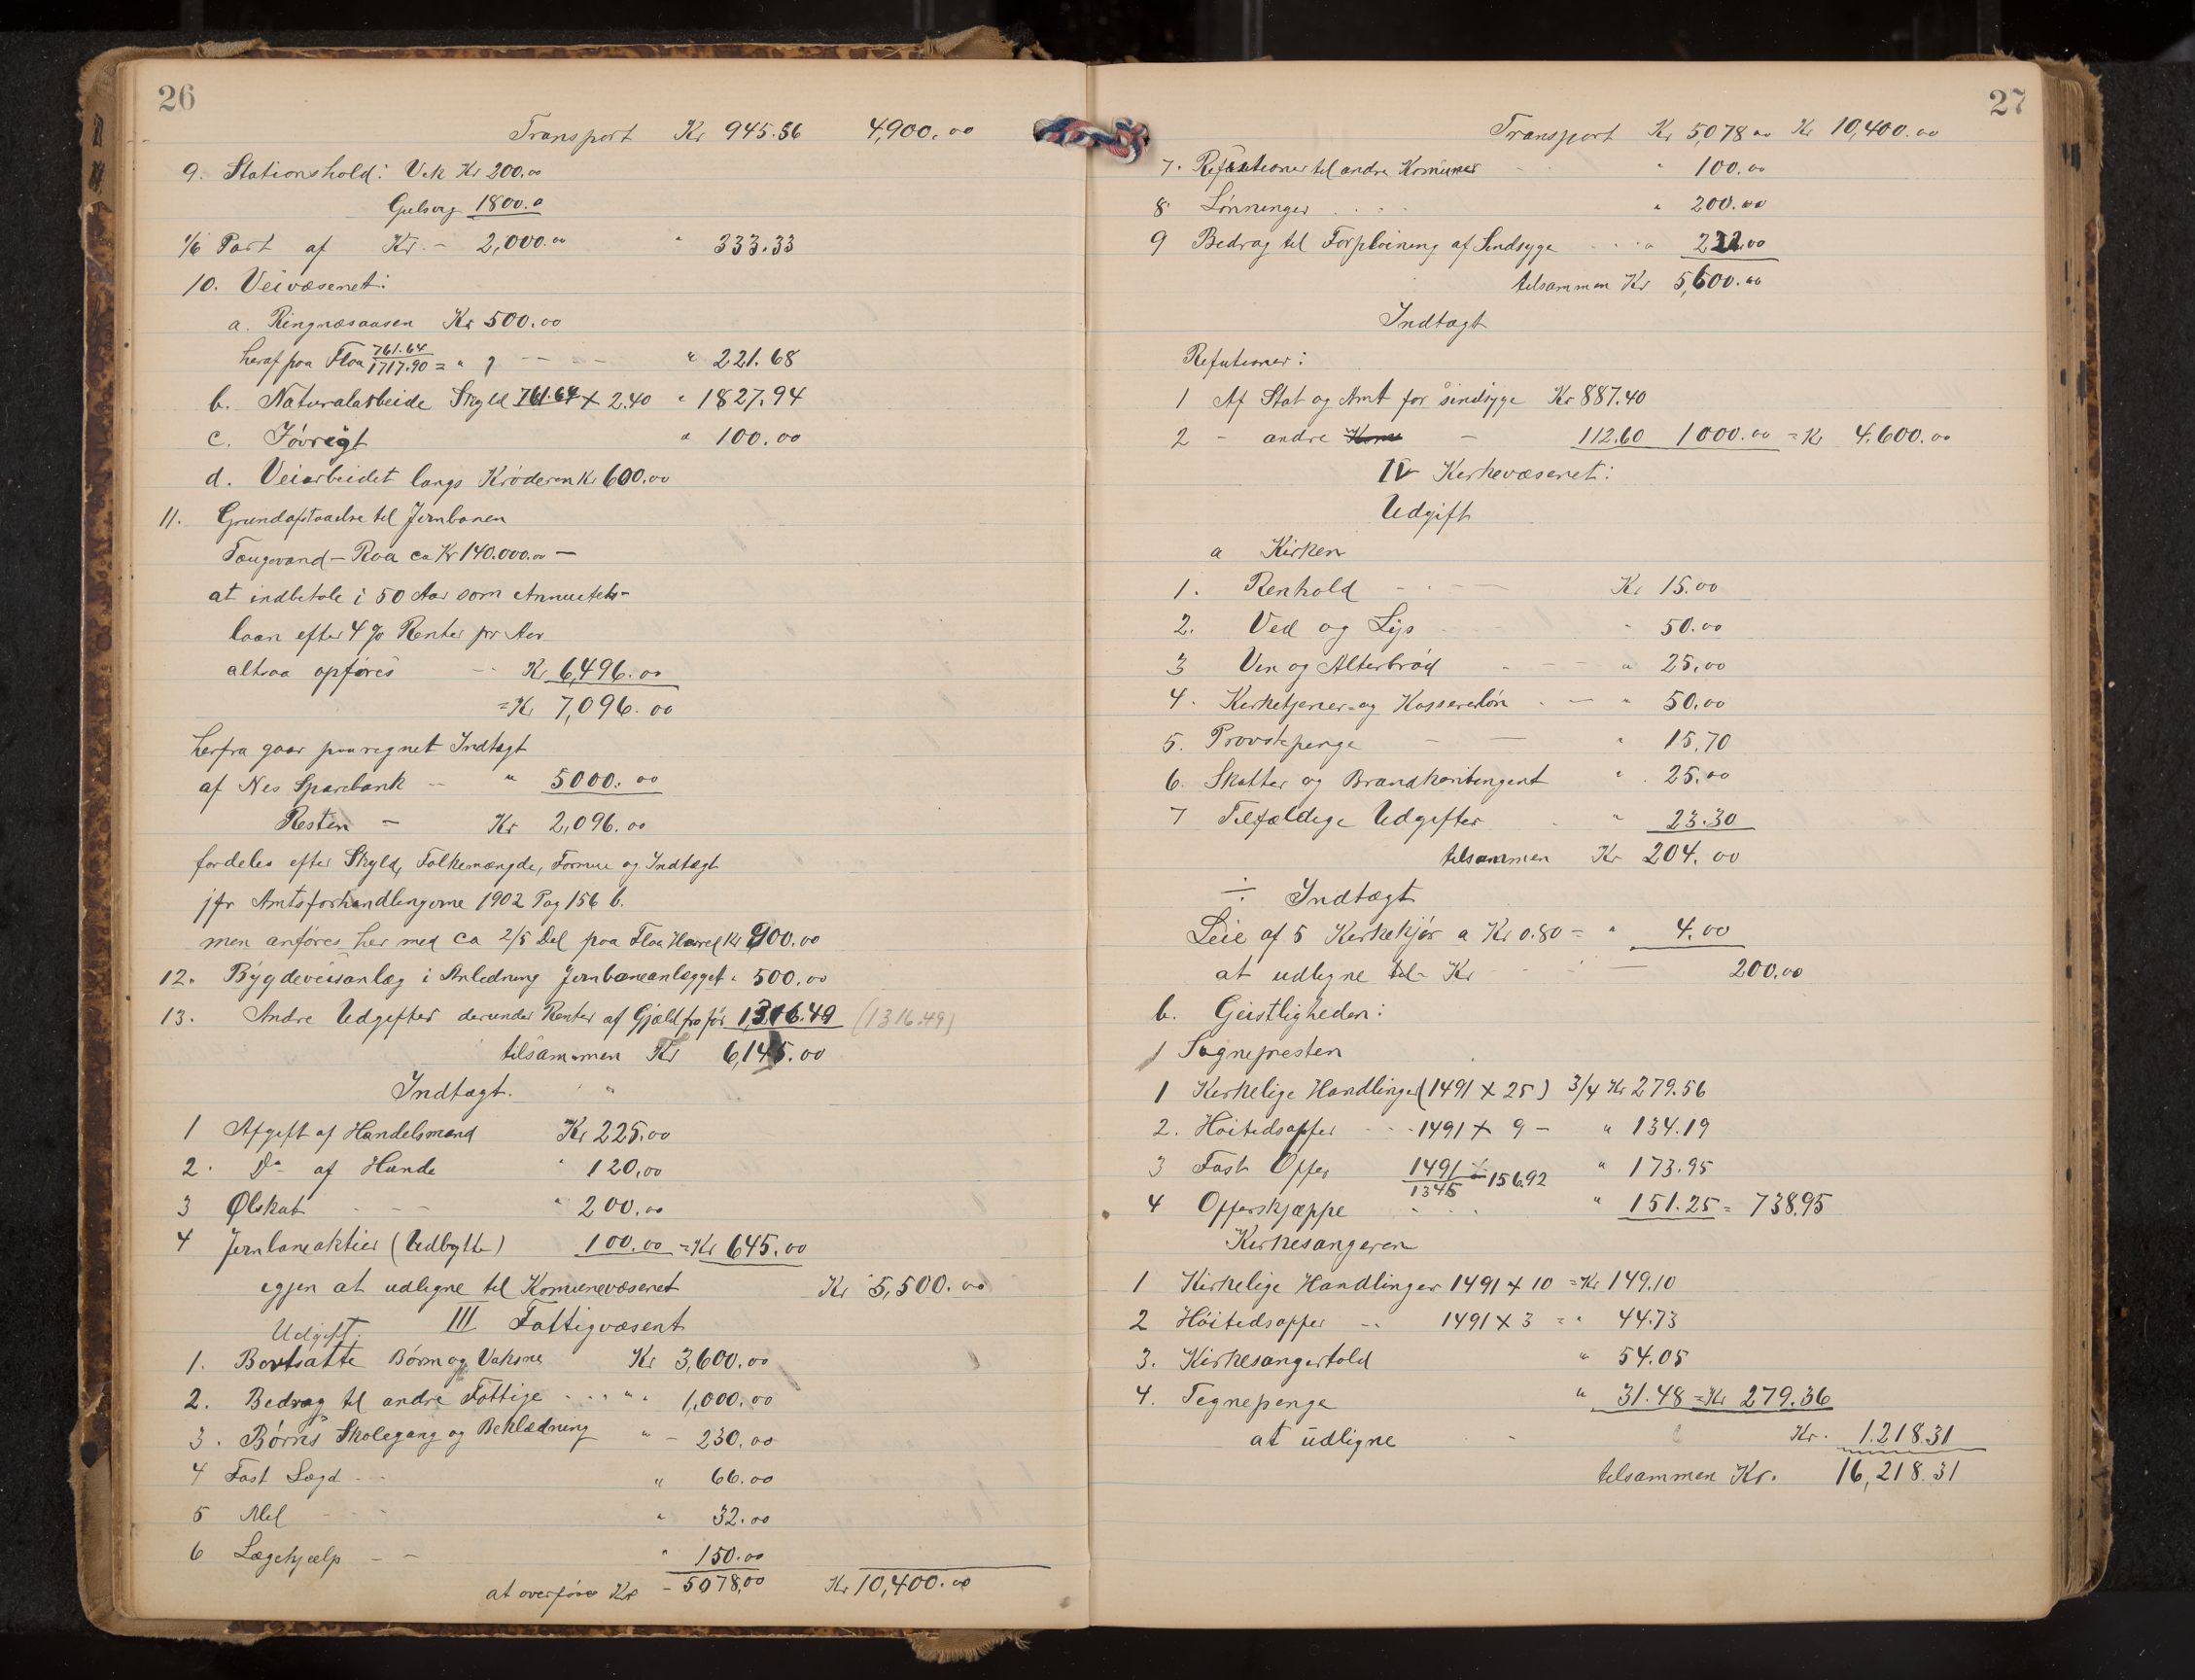 26
Transport Kr 945.56 4,900.00
9. Stationshold: Vik Kr 200.00
Gulsvig 1800.0
1/6 Part af Kr - 2,000.00 " 333.33
10. Veivæsenet:
a. Ringnæsaasen Kr 500.00
heraf paa Flaa 761.64/1717.90 = " ? - - - " 221.68
b. Naturalarbeide Skyld 761.64 X 2.40 " 1827.94
c. Føvrigt " 100.00
d. Veiarbeidet langs Krøderen Kr 600.00
11. Grundafstaaelse til Jernbanen
Taugevand - Roa ca Kr 140.000.00 -
at indbetale i 50 Aar som Annuitets-
laan efter 4 % Renter pr Aar
altsaa opføres - - Kr 6,496.00
= Kr 7,096.00
herfra gaar paaregnet Indtægt
af Nes Sparebank - - " 5000.00
Resten - Kr 2,096.00
fordeles efter Skyld, Folkemængde, Formue og Indtægt
jfr Amtsforhandlingerne 1902 Pag 156 b.
men anføres her med ca 2/5 Del paa Flaa Herred Kr 900.00
12. Bygdeveisanlæg i Anledning Jernbaneanlægget " 500.00
13. Andre Udgifter derunder Renter af Gjæld fra før 1316.49 (1316.49)
tilsammen Kr 6,145.00
Indtægt.
1 Afgift af Handelsmænd Kr 225.00
2. Do af Hunde " 120.00
3 Ølskat - - - " 200.00
4 Jernbaneaktier (Udbytte) 100.00 = Kr 645.00
igjen at udligne til Komunevæsenet Kr 5,500.00
Udgift. III Fattigvæsent
1. Bortsatte Børn og Voksne Kr 3,600.00
2. Bedrag til andre Fattige . . . " " 1,000.00
3. Børns Skolegang og Beklædning " - 230.00
4 Fast Lægd - - " 66.00
5 Mel - - - " 32.00
6 Lægehjælp - - " 150.00
at overføre Kr - 5078.00 Kr 10,400.00
27
Transport Kr 5,078.00 Kr 10,400.00
7. Refutioner til andre Komuner - " 100.00
8. Lønninger . . - . " 200.00
9 Bedrag til Forpleining af Sindsyge . . . " 222.00
tilsammen Kr 5,600.00
Indtægt
Refutioner:
1 Af Stat og Amt for sindsyge Kr 887.40
2 - andre Kom - 112.60 1000.00 = Kr 4.600.00
IV Kirkevæsenet:
Udgift
a Kirken
1. Renhold - - - - Kr 15.00
2. Ved og Lys " 50.00
3 Vin og Alterbrød - - - " 25.00
4. Kirketjener- og Kassererløn . - " 50.00
5. Provstepenge - - " 15.70
6. Skatter og Brandkontingent " 25.00
7 Tilfældige Udgifter " 23.30
tilsammen Kr 204.00
÷ Indtægt
Leie af 5 Kirkekjør a Kr 0.80 = " 4.00
at udligne til- Kr - - - 200.00
b. Geistligheden:
1 Sognepresten
1 Kirkelige Handlinger (1491 X 25) 3/4 Kr 279.56
2. Høitidsoffer - - - 1491 X 9 - " 134.19
3 Fast Offer 1491/1345 X 156.92 " 173.95
4 Offerskjæppe . . . " 151.25 = 738.95
Kirkesangeren
1 Kirkelige Handlinger 1491 X 10 = Kr 149.10
2 Høitidsoffer - - 1491 X 3 = " 44.73
3. Kirkesangertold " 54.05
4. Tegnepenge " 31.48 = Kr 279.36
at udligne - Kr. 1.218.31
tilsammen Kr. 16,218.31